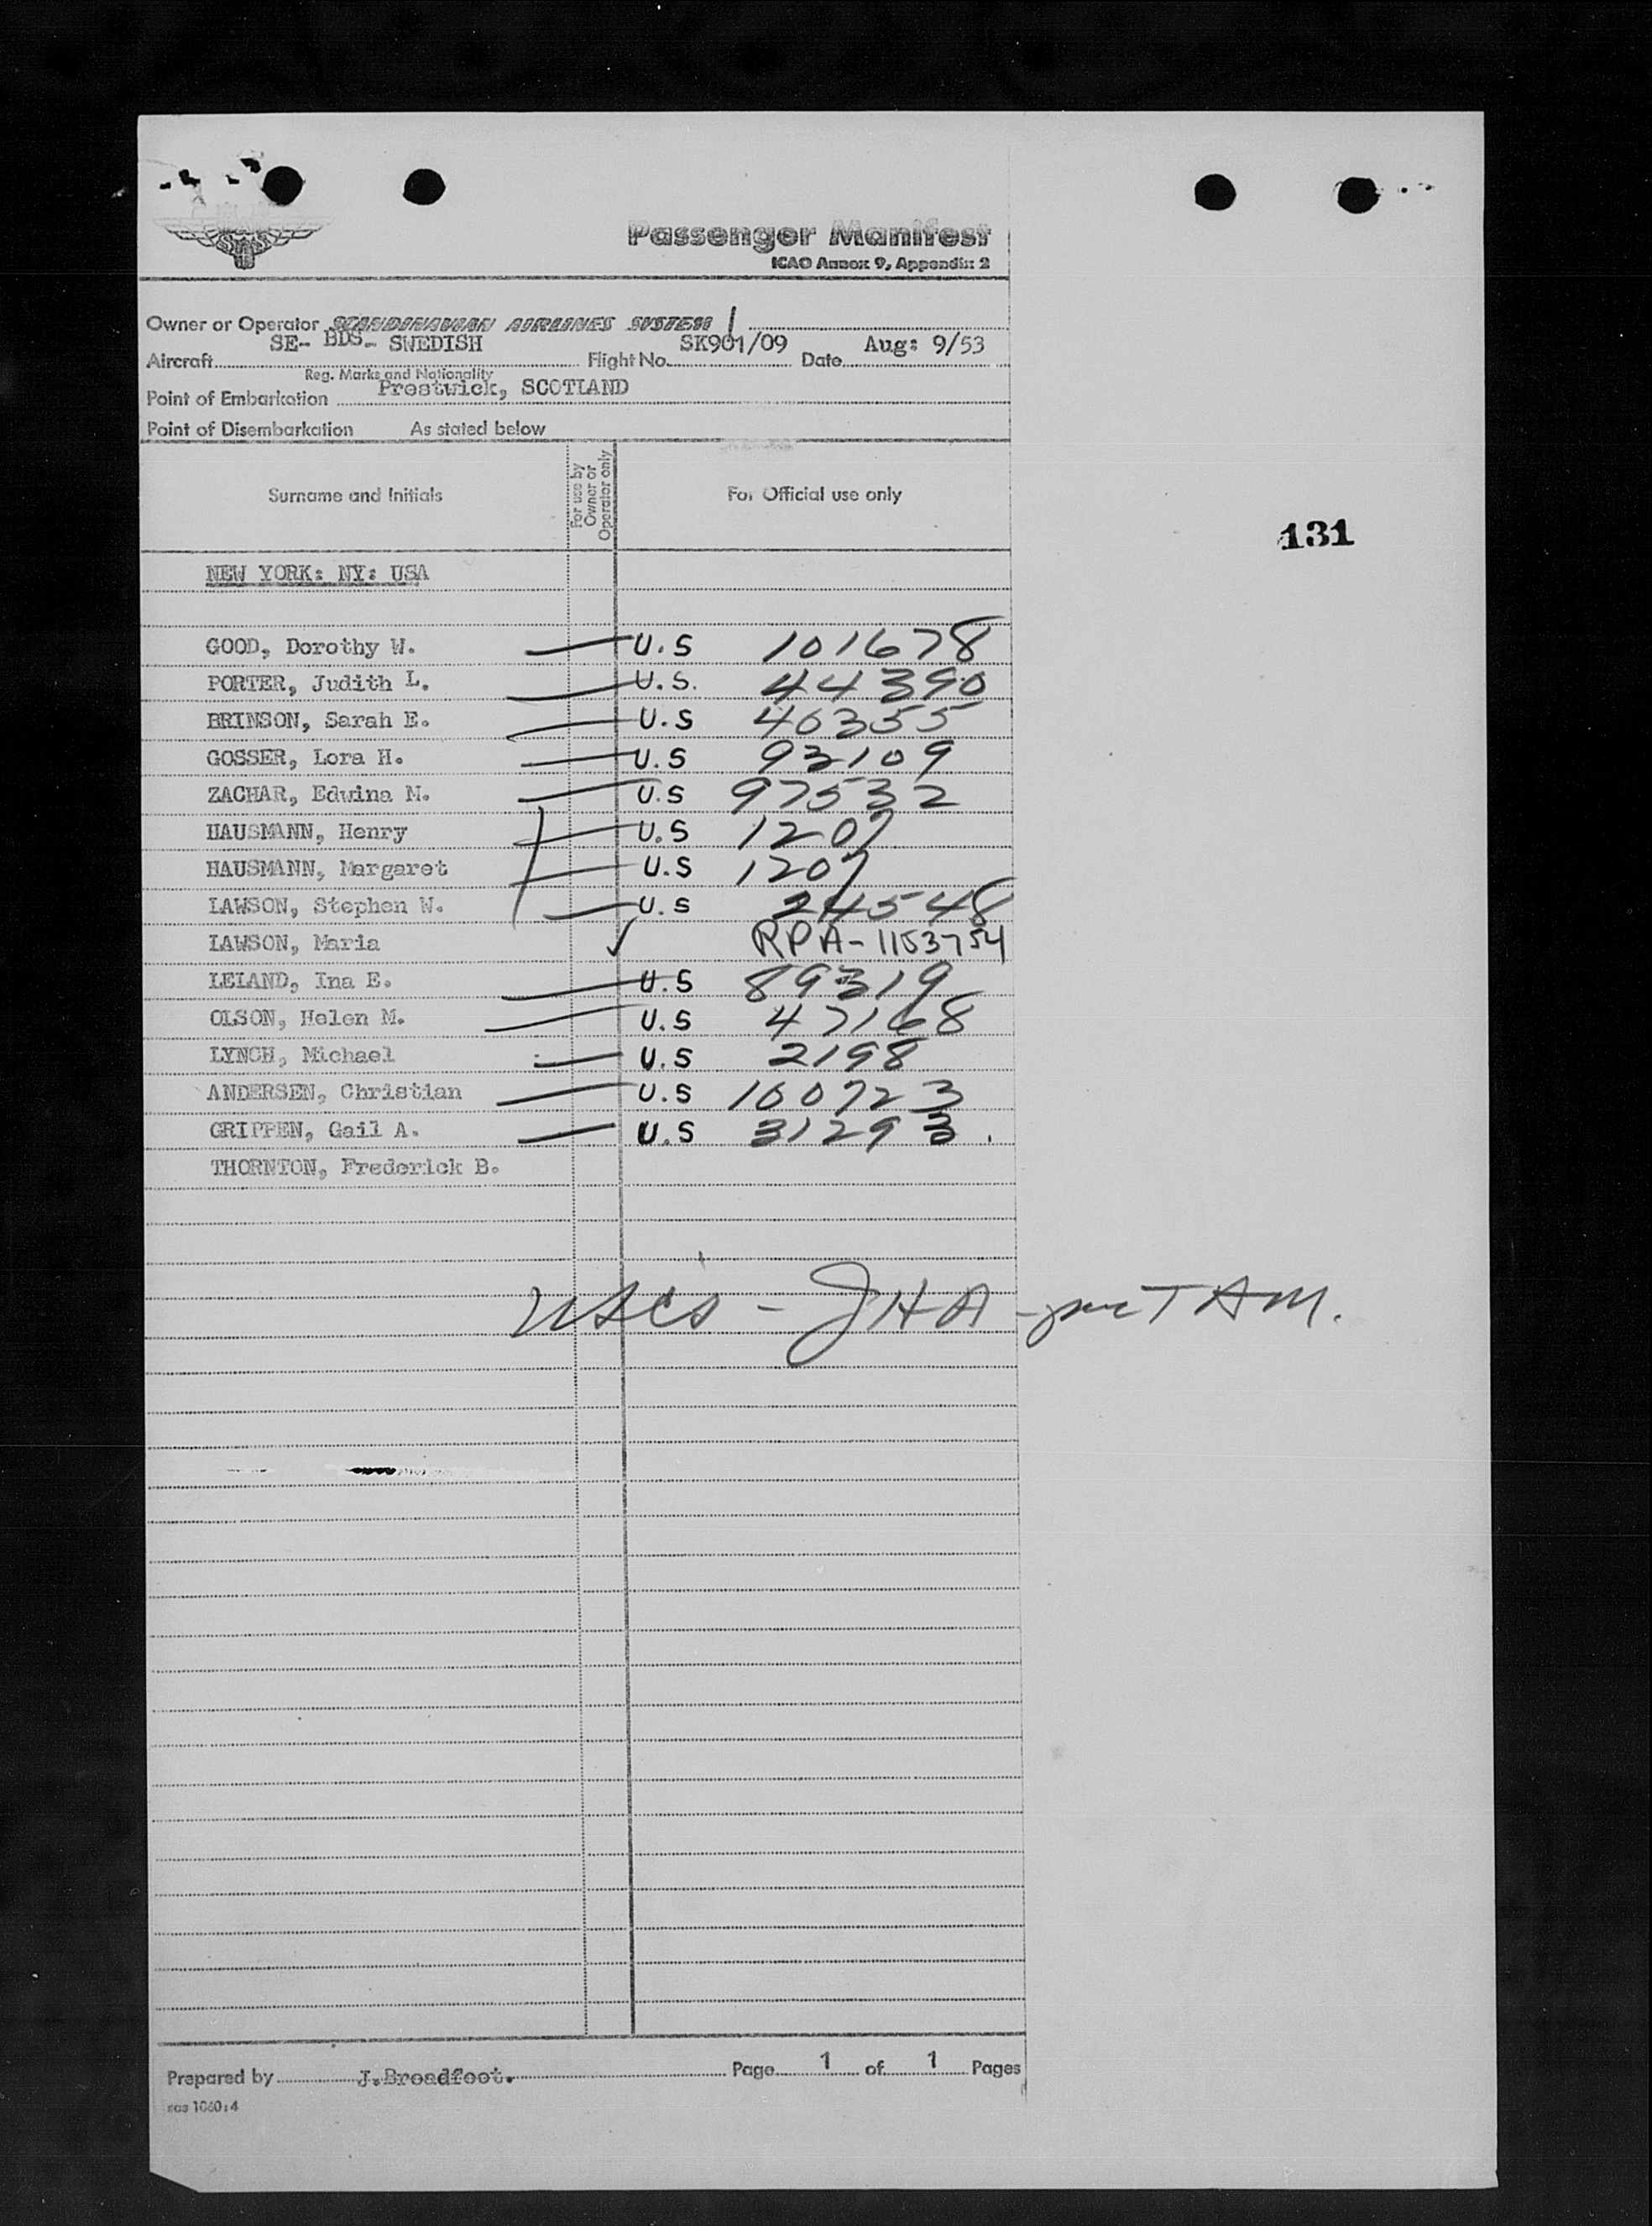 SAS
Passenger Manifest
ICAO Annex 9, Appendix 2
Owner or Operator SCANDINAVIAN AIRLINES SYSTEM
Aircraft SE- BDS- SWEDISH Flight No. SK901/09 Date Aug: 9/53
Reg. Marks and Nationality
Point of Embarkation Prestwick, SCOTLAND
Point of Disembarkation As stated below
Surname and Initials
For use by Owner or Operator only
For Official use only
131
NEW YORK: NY: USA
GOOD, Dorothy W. U.S 101678
PORTER, Judith L. U.S. 44390
BRINSON, Sarah E. U.S 46355
GOSSER, Lora H. U.S 93109
ZACHAR, Edwina M. U.S 97532
HAUSMANN, Henry U.S 1207
HAUSMANN, Margaret U.S 1207
LAWSON, Stephen W. U.S 244548
LAWSON, Maria ✓ RPA-1153754
LELAND, Ina E. U.S 89319
OLSON, Helen M. U.S 47168
LYNCH, Michael U.S 2198
ANDERSEN, Christian U.S 160723
GRIPPEN, Gail A. U.S 31293.
THORNTON, Frederick B.
USCS - JHA - per TAM.
Prepared by J.Broadfoot. Page 1 of 1 Pages
sas 1060:4